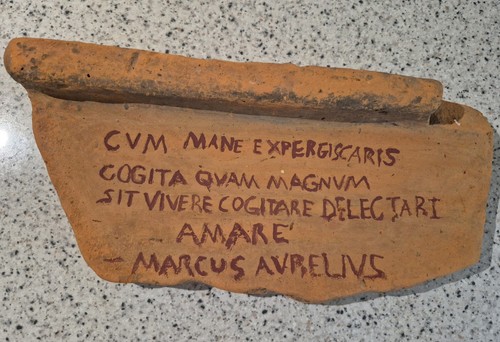 CVM MANE EXPERGISCARIS
COGITA QVAM MAGNVM
SIT VIVERE COGITARE DELECTARI
AMARE
MARCUS AVRELIVS